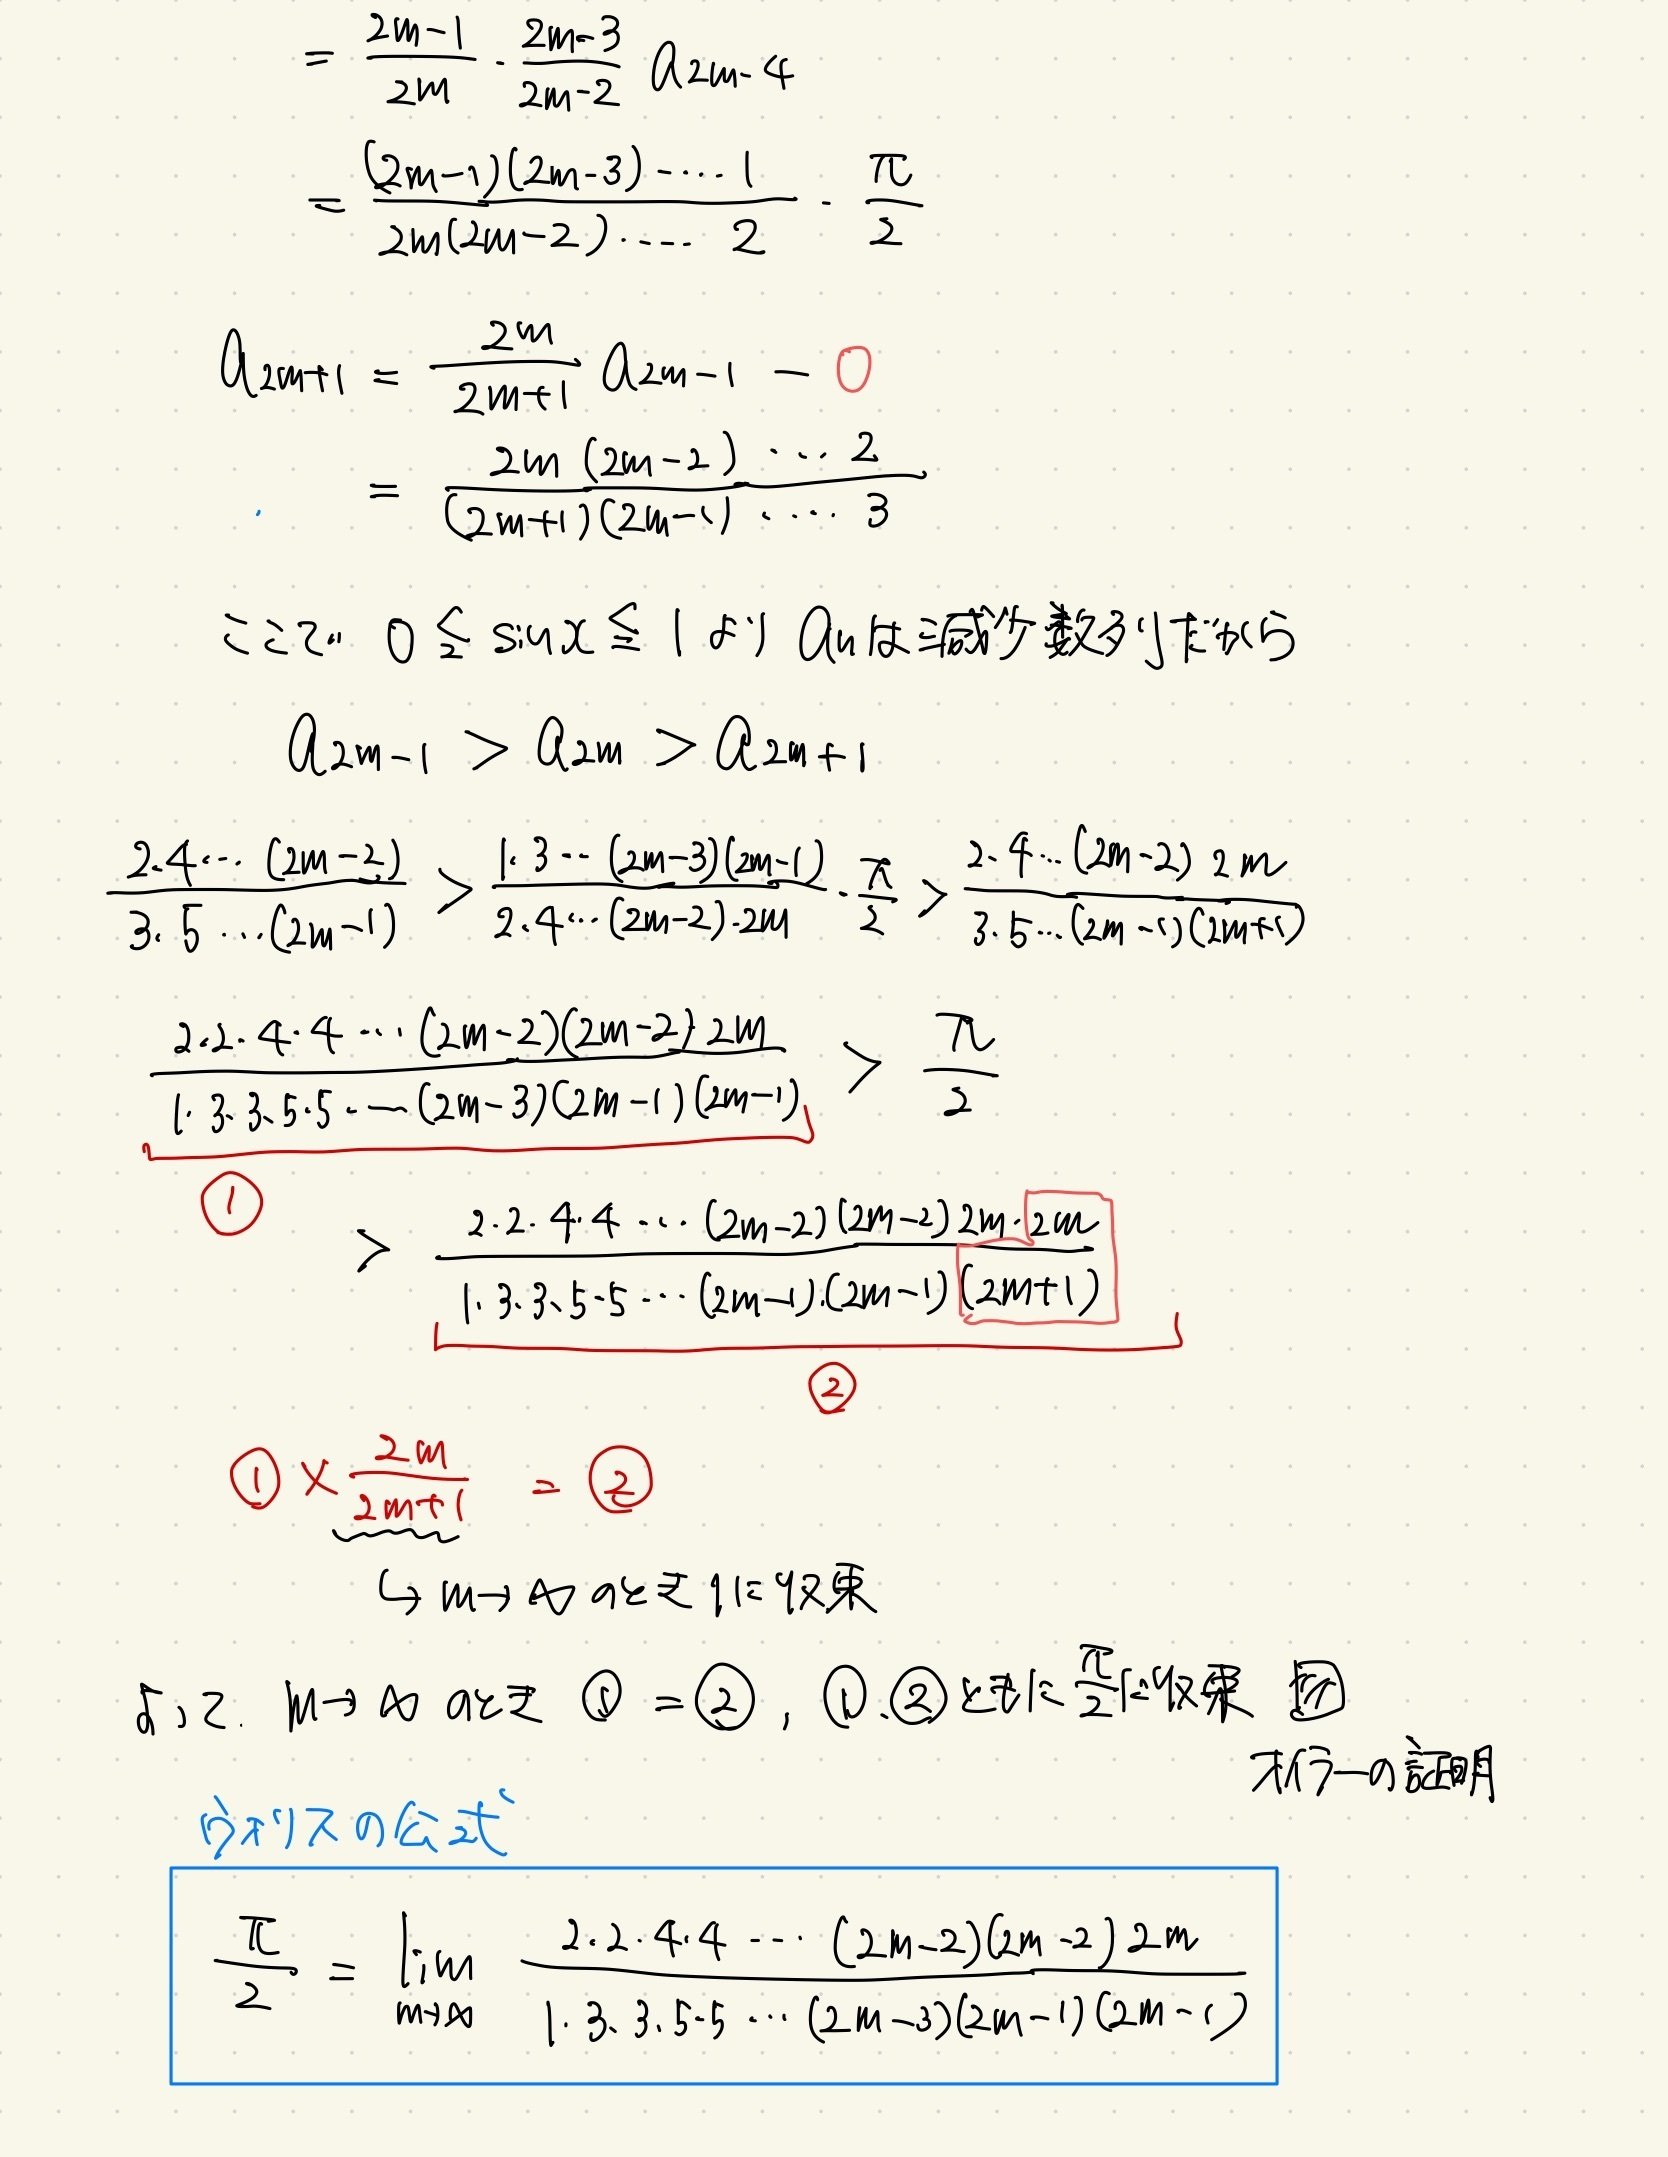 = \frac{2m-1}{2m} \cdot \frac{2m-3}{2m-2} a_{2m-4}
= \frac{(2m-1)(2m-3)\cdots 1}{2m(2m-2)\cdots 2} \cdot \frac{\pi}{2}
a_{2m+1} = \frac{2m}{2m+1} a_{2m-1} - 0
= \frac{2m(2m-2)\cdots 2}{(2m+1)(2m-1)\cdots 3}
ここで 0 ≦ sinx ≦ 1 より anは減少数列だから
a_{2m-1} > a_{2m} > a_{2m+1}
\frac{2.4\cdots(2m-2)}{3.5\cdots(2m-1)} > \frac{1.3\cdots(2m-3)(2m-1)}{2.4\cdots(2m-2).2m} \cdot \frac{\pi}{2} > \frac{2.4\cdots(2m-2)2m}{3.5\cdots(2m-1)(2m+1)}
\frac{2.2.4.4\cdots(2m-2)(2m-2)2m}{1.3.3.5.5\cdots(2m-3)(2m-1)(2m-1)} > \frac{\pi}{2}
①
> \frac{2.2.4.4\cdots(2m-2)(2m-2)2m.2m}{1.3.3.5.5\cdots(2m-1).(2m-1)(2m+1)}
②
① × \frac{2m}{2m+1} = ②
↳ m→∞ のとき 1に収束
よって. m→∞ のとき ① = ②, ①.② ともに \frac{\pi}{2} に収束
オイラーの証明
ウォリスの公式
\frac{\pi}{2} = \lim_{m→∞} \frac{2.2.4.4\cdots(2m-2)(2m-2)2m}{1.3.3.5.5\cdots(2m-3)(2m-1)(2m-1)}